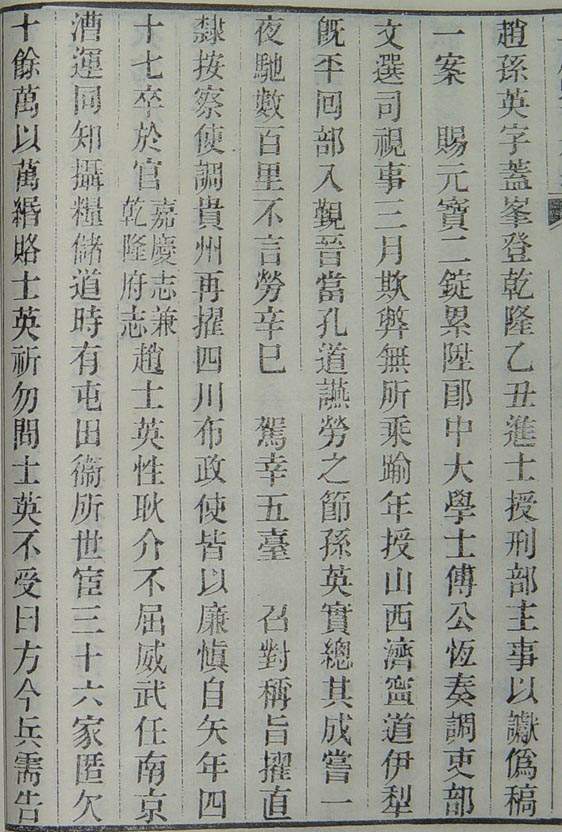 趙孫英字蓋峯登乾隆乙丑進士授刑部主事以讞僞稿
一案　賜元寶二錠累陞郎中大學士傅公恆奏調吏部
文選司視事三月欺弊無所乘踰年授山西濟寧道伊犁
旣平回部入覲晉當孔道讌勞之節孫英實總其成嘗一
夜馳數百里不言勞辛巳　駕幸五臺　召對稱旨擢直
隸按察使調貴州再擢四川布政使皆以廉愼自矢年四
十七卒於官嘉慶志兼乾隆府志趙士英性耿介不屈威武任南京
漕運同知攝糧儲道時有屯田衞所世宦三十六家匿欠
十餘萬以萬緡賂士英祈勿問士英不受曰方今兵需告